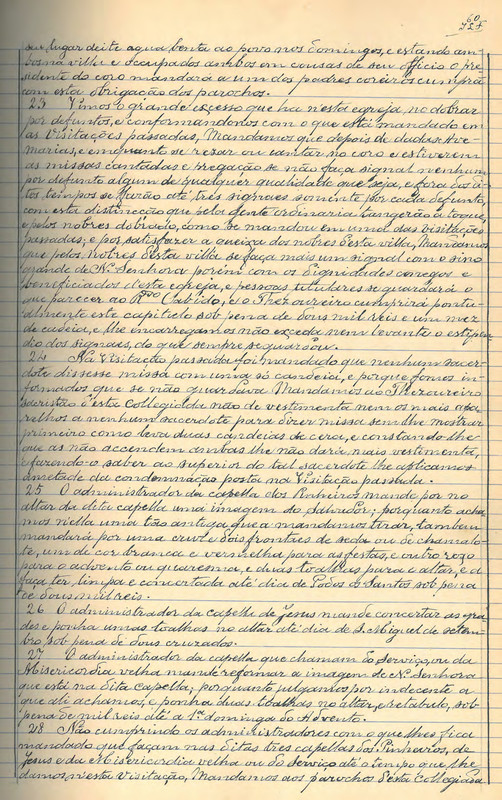 60
725
seu lugar deite agua benta ao povo nos domingos, e estando am-
bos na villa e occupados ambos em cousas de seu officio o pre-
sidente do coro mandará a um dos padres coreiros cumpra
com esta obrigação dos parochos.
23 Vimos o grande excesso que ha n'esta egreja, no dobrar
por defuntos, e conformandonos com o que está mandado em
as Visitações passadas, Mandamos que depois de dadas Ave
marias, e emquanto se rezar ou cantar no coro e estiverem
as missas cantadas e pregação se não faça signal nenhum
por defunto algum de qualquer qualidade que seja, e fora dos di-
tos tempos se farão até tres signaes somente por cada defunto,
com esta distincção que pela gente ordinaria tangerão a toque,
e pelos nobres dobrado, como se mandou em uma das visitações
passadas; e por satisfazer a queixa dos nobres d'esta villa, Mandamos
que pelos nobres d'esta villa se faça mais um signal com o sino
grande de Nª Senhora porem com os Dignidades conegos e
beneficiados d'esta egreja, e pessoas titulares se guardará o
que parecer ao Rdo Cabido, e o Thezoureiro cumprirá pontu-
almente este capitulo sob pena de dous mil reis e um mez
de cadeia, e lhe encarregamos não exceda nem levante o estipen-
dio dos signaes, do que sempre se guardou.
24 Na Visitação passada foi mandado que nenhum sacer-
dote dissesse missa com uma só candeia, e porque fomos in-
formados que se não guardava Mandamos ao Thezoureiro
sacristão d'esta Collegiada não dê vestimenta nem os mais apa-
relhos a nenhum sacerdote para dizer missa sem lhe mostrar
primeiro como leva duas candeias de cera, e constando-lhe
que as não accendem ambas lhe não dará mais vestimenta,
e fazendo-o saber ao superior do tal sacerdote lhe aplicamos
ametade da condemnação posta na Visitação passada.
25 O administrador da capella dos Pinheiros mande por no
altar da dita capella uma imagem do Salvador; porquanto acha-
mos n'ella uma tão antiga que a mandamos tirar, tambem
mandará por uma cruz e dois frontaes de seda ou de chamalo-
te, um de cor branca e vermelha para as festas, e outro roxo
para o advento ou quaresma, e duas toalhas para o altar, e a
faça ter, limpa e concertada até dia de Todos os Santos sob pena
de dous mil reis.
26 O administrador da capella de Jesus mande concertar as gra-
des e ponha umas toalhas no altar até dia de S. Miguel de setem-
bro, sob pena de dous cruzados.
27 O administrador da capella que chamam do Serviço, ou da
Misericordia velha mande reformar a imagem de Nª Senhora
que está na dita capella; porquanto julgamos por indecente a
que ali achamos, e ponha duas toalhas no altar, e retabulo, sob
pena de mil reis até a 1ª dominga do Advento.
28 Não cumprindo os administradores com o que lhes fica
mandado que façam nas ditas tres capellas dos Pinheiros, de
Jesus e da Misericordia velha ou do Serviço até o tempo que lhe
damos n'esta visitação, Mandamos aos parochos d'esta Collegiada